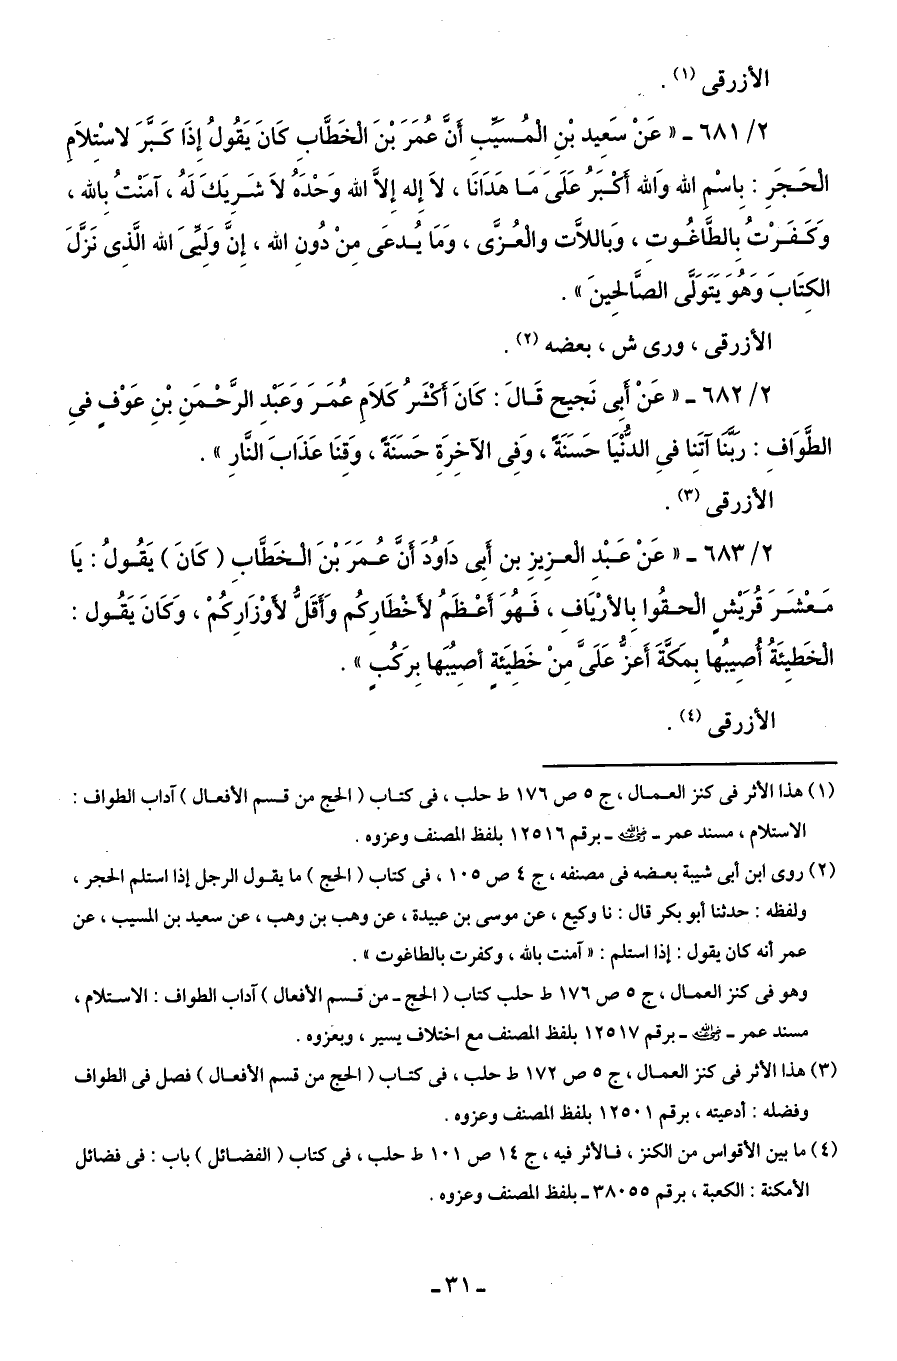 الأزرقى (١) .
٢/ ٦٨١ ـ « عَنْ سَعِيدِ بْنِ الْمُسَيَّبِ أَنَّ عُمَرَ بْنَ الْخَطَّابِ كَانَ يَقُولُ إِذَا كَبَّرَ لاسْتِلاَمِ
الْحَجَرِ : بِاسْمِ اللهِ وَالله أَكْبَرُ عَلَىَ مَا هَدَانَا ، لاَ إِله إِلاَّ الله وَحْدَهُ لاَ شَرِيكَ لَهُ ، آمَنْتُ بِالله ،
وَكَفَرْتُ بِالطَّاغُوتِ ، وَبِاللاَّت والْعُزَّى ، وَمَا يُدعَى مِنْ دُونِ الله ، إِنَّ وَلِيِّىَ الله الَّذى نَزَّلَ
الكِتَابَ وَهُوَ يَتَوَلَّى الصَّالِحِينَ » .
الأزرقى ، ورى ش ، بعضه (٢) .
٢/ ٦٨٢ ـ « عَنْ أَبِى نَجِيحٍ قَالَ : كَانَ أَكْثَرُ كَلاَمِ عُمَرَ وَعَبْدِ الرَّحْمَنِ بْنِ عَوْفٍ فِى
الطَّوَافِ : رَبَّنَا آتِنَا فِى الدُّنْيَا حَسَنَةً ، وَفِى الآخِرَةِ حَسَنَةً ، وَقِنَا عَذَابَ النَّارِ » .
الأزرقى (٣) .
٢/ ٦٨٣ ـ « عَنْ عَبْدِ العزِيزِ بنِ أَبِى دَاوُدَ أَنَّ عُمَرَ بْنَ الْخَطَّابِ ( كَانَ ) يَقُولُ : يَا
مَعْشَرَ قُرَيْشٍ الْحقُوا بِالأرْيَافِ ، فَهُوَ أَعْظَمُ لأَخْطَارِكُم وَأَقَلُّ لأَوْزَارِكُمْ ، وَكَانَ يَقُول :
الْخَطِيئَةُ أُصِيبُهَا بِمَكَّةَ أَعزُّ عَلَىَّ مِنْ خَطِيئَةٍ أُصِيبُهَا بِرَكْبٍ » .
الأزرقى (٤) .
(١) هذا الأثر فى كنز العمال ، ج ٥ ص ١٧٦ ط حلب ، فى كتاب ( الحج من قسم الأفعال ) آداب الطواف :
الاستلام ، مسند عمر ـ ﷺ ـ برقم ١٢٥١٦ بلفظ المصنف وعزوه .
(٢) روى ابن أبى شيبة بعضه فى مصنفه ، ج ٤ ص ١٠٥ ، فى كتاب ( الحج ) ما يقول الرجل إذا استلم الحجر ،
ولفظه : حدثنا أبو بكر قال : نا وكيع ، عن موسى بن عبيدة ، عن وهب بن وهب ، عن سعيد بن المسيب ، عن
عمر أنه كان يقول : إذا استلم : « آمنت بالله ، وكفرت بالطاغوت » .
وهو فى كنز العمال ، ج ٥ ص ١٧٦ ط حلب كتاب ( الحج ـ من قسم الأفعال ) آداب الطواف : الاستلام ،
مسند عمر ـ ـ برقم ١٢٥١٧ بلفظ المصنف مع اختلاف يسير ، وبعزوه .
(٣) هذا الأثر فى كنز العمال ، ج ٥ ص ١٧٢ ط حلب ، فى كتاب ( الحج من قسم الأفعال ) فصل فى الطواف
وفضله : أدعيته ، برقم ١٢٥٠١ بلفظ المصنف وعزوه .
(٤) ما بين الأقواس من الكنز ، فالأثر فيه ، ج ١٤ ص ١٠١ ط حلب ، فى كتاب ( الفضائل ) باب : فى فضائل
الأمكنة : الكعبة ، برقم ٣٨٠٥٥ ـ بلفظ المصنف وعزوه .
ـ ٣١ ـ